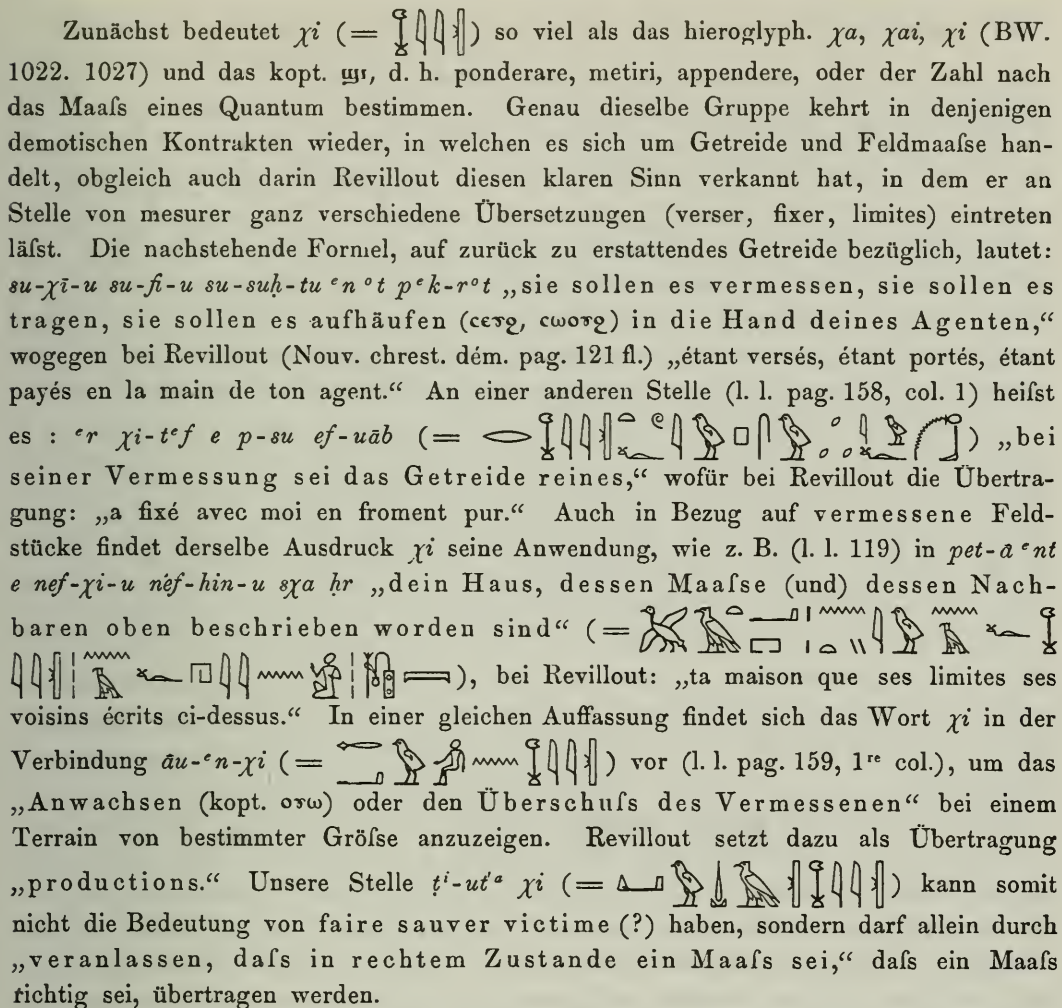 Zunächst bedeutet χi (= ) so viel als das hieroglyph. χa, χai, χi (BW.
1022. 1027) und das kopt. ϣⲓ, d. h. ponderare, metiri, appendere, oder der Zahl nach
das Maaſs eines Quantum bestimmen. Genau dieselbe Gruppe kehrt in denjenigen
demotischen Kontrakten wieder, in welchen es sich um Getreide und Feldmaaſse han-
delt, obgleich auch darin Revillout diesen klaren Sinn verkannt hat, in dem er an
Stelle von mesurer ganz verschiedene Übersetzungen (verser, fixer, limites) eintreten
läſst. Die nachstehende Formel, auf zurück zu erstattendes Getreide bezüglich, lautet:
su-χī-u su-fi-u su-suḥ-tu ᵉn ᵒt pᵉk-rᵒt „sie sollen es vermessen, sie sollen es
tragen, sie sollen es aufhäufen (ⲥⲉⲩϩ, ⲥⲱⲟⲩϩ) in die Hand deines Agenten,“
wogegen bei Revillout (Nouv. chrest. dém. pag. 121 fl.) „étant versés, étant portés, étant
payés en la main de ton agent.“ An einer anderen Stelle (l. l. pag. 158, col. 1) heiſst
es : ᵉr χi-tᵉf e p-su ef-uāb (= ) „bei
seiner Vermessung sei das Getreide reines,“ wofür bei Revillout die Übertra-
gung: „a fixé avec moi en froment pur.“ Auch in Bezug auf vermessene Feld-
stücke findet derselbe Ausdruck χi seine Anwendung, wie z. B. (l. l. 119) in pet-ā ᵉnt
e nef-χi-u nef-hin-u sχa ḥr „dein Haus, dessen Maaſse (und) dessen Nach-
baren oben beschrieben worden sind“ (=
), bei Revillout: „ta maison que ses limites ses
voisins écrits ci-dessus.“ In einer gleichen Auffassung findet sich das Wort χi in der
Verbindung āu-ᵉn-χi (= ) vor (l. l. pag. 159, 1ʳᵉ col.), um das
„Anwachsen (kopt. ⲟⲩⲱ) oder den Überschuſs des Vermessenen“ bei einem
Terrain von bestimmter Gröſse anzuzeigen. Revillout setzt dazu als Übertragung
„productions.“ Unsere Stelle ṭⁱ-ut'ᵃ χi (= ) kann somit
nicht die Bedeutung von faire sauver victime (?) haben, sondern darf allein durch
„veranlassen, daſs in rechtem Zustande ein Maaſs sei,“ daſs ein Maaſs
richtig sei, übertragen werden.